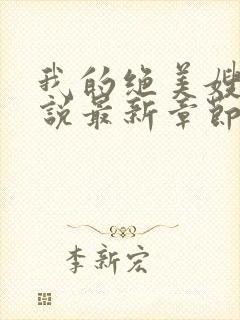 我的绝美嫂
说最新章节
李新宏